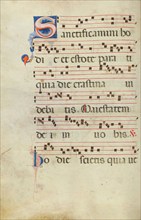 Sanctificamini ho
di e et estote para ti
quia die crastina vi
debitis Maiestatem
de i in uo bis &
Ho die scietis quia ue